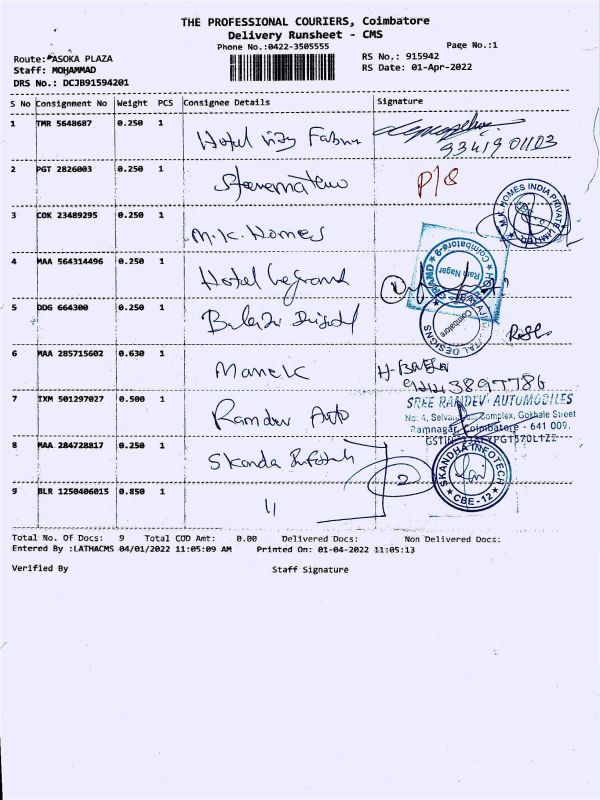 THE PROFESSIONAL COURIERS, Coimbatore
Delivery Runsheet - CMS
Phone No.:0422-3505555
Page No.:1
Route: ASOKA PLAZA
Staff: MOHAMMAD
DRS No.: DCJB91594201
RS No.: 915942
RS Date: 01-Apr-2022
S No Consignment No Weight PCS Consignee Details Signature
1 TMR 5648687 0.250 1 Hotel
93419 01103
2 PGT 2826003 0.250 1
P/S
3 COK 23489295 0.250 1 M.K. Homes
M.K. HOMES INDIA PRIVATE LIMITED
4 MAA 564314496 0.250 1 Hotel Legrand
Ram Nagar
Coimbatore-9
5 DDG 664300 0.250 1
DIGITAL DESIGNS
Coimbatore
6 MAA 285715602 0.630 1 Maneck
7 IXM 501297027 0.500 1 Ramdev Auto
SREE RAMDEV AUTOMOBILES
No: 4, Complex, Gokhale Street
Ramnagar, Coimbatore - 641 009.
8 MAA 284728817 0.250 1 Skanda Infotech
2
SKANDHA INFOTECH
CBE-12
9 BLR 1250406015 0.850 1 "
Total No. Of Docs: 9 Total COD Amt: 0.00 Delivered Docs: Non Delivered Docs:
Entered By :LATHACMS 04/01/2022 11:05:09 AM Printed On: 01-04-2022 11:05:13
Verified By Staff Signature